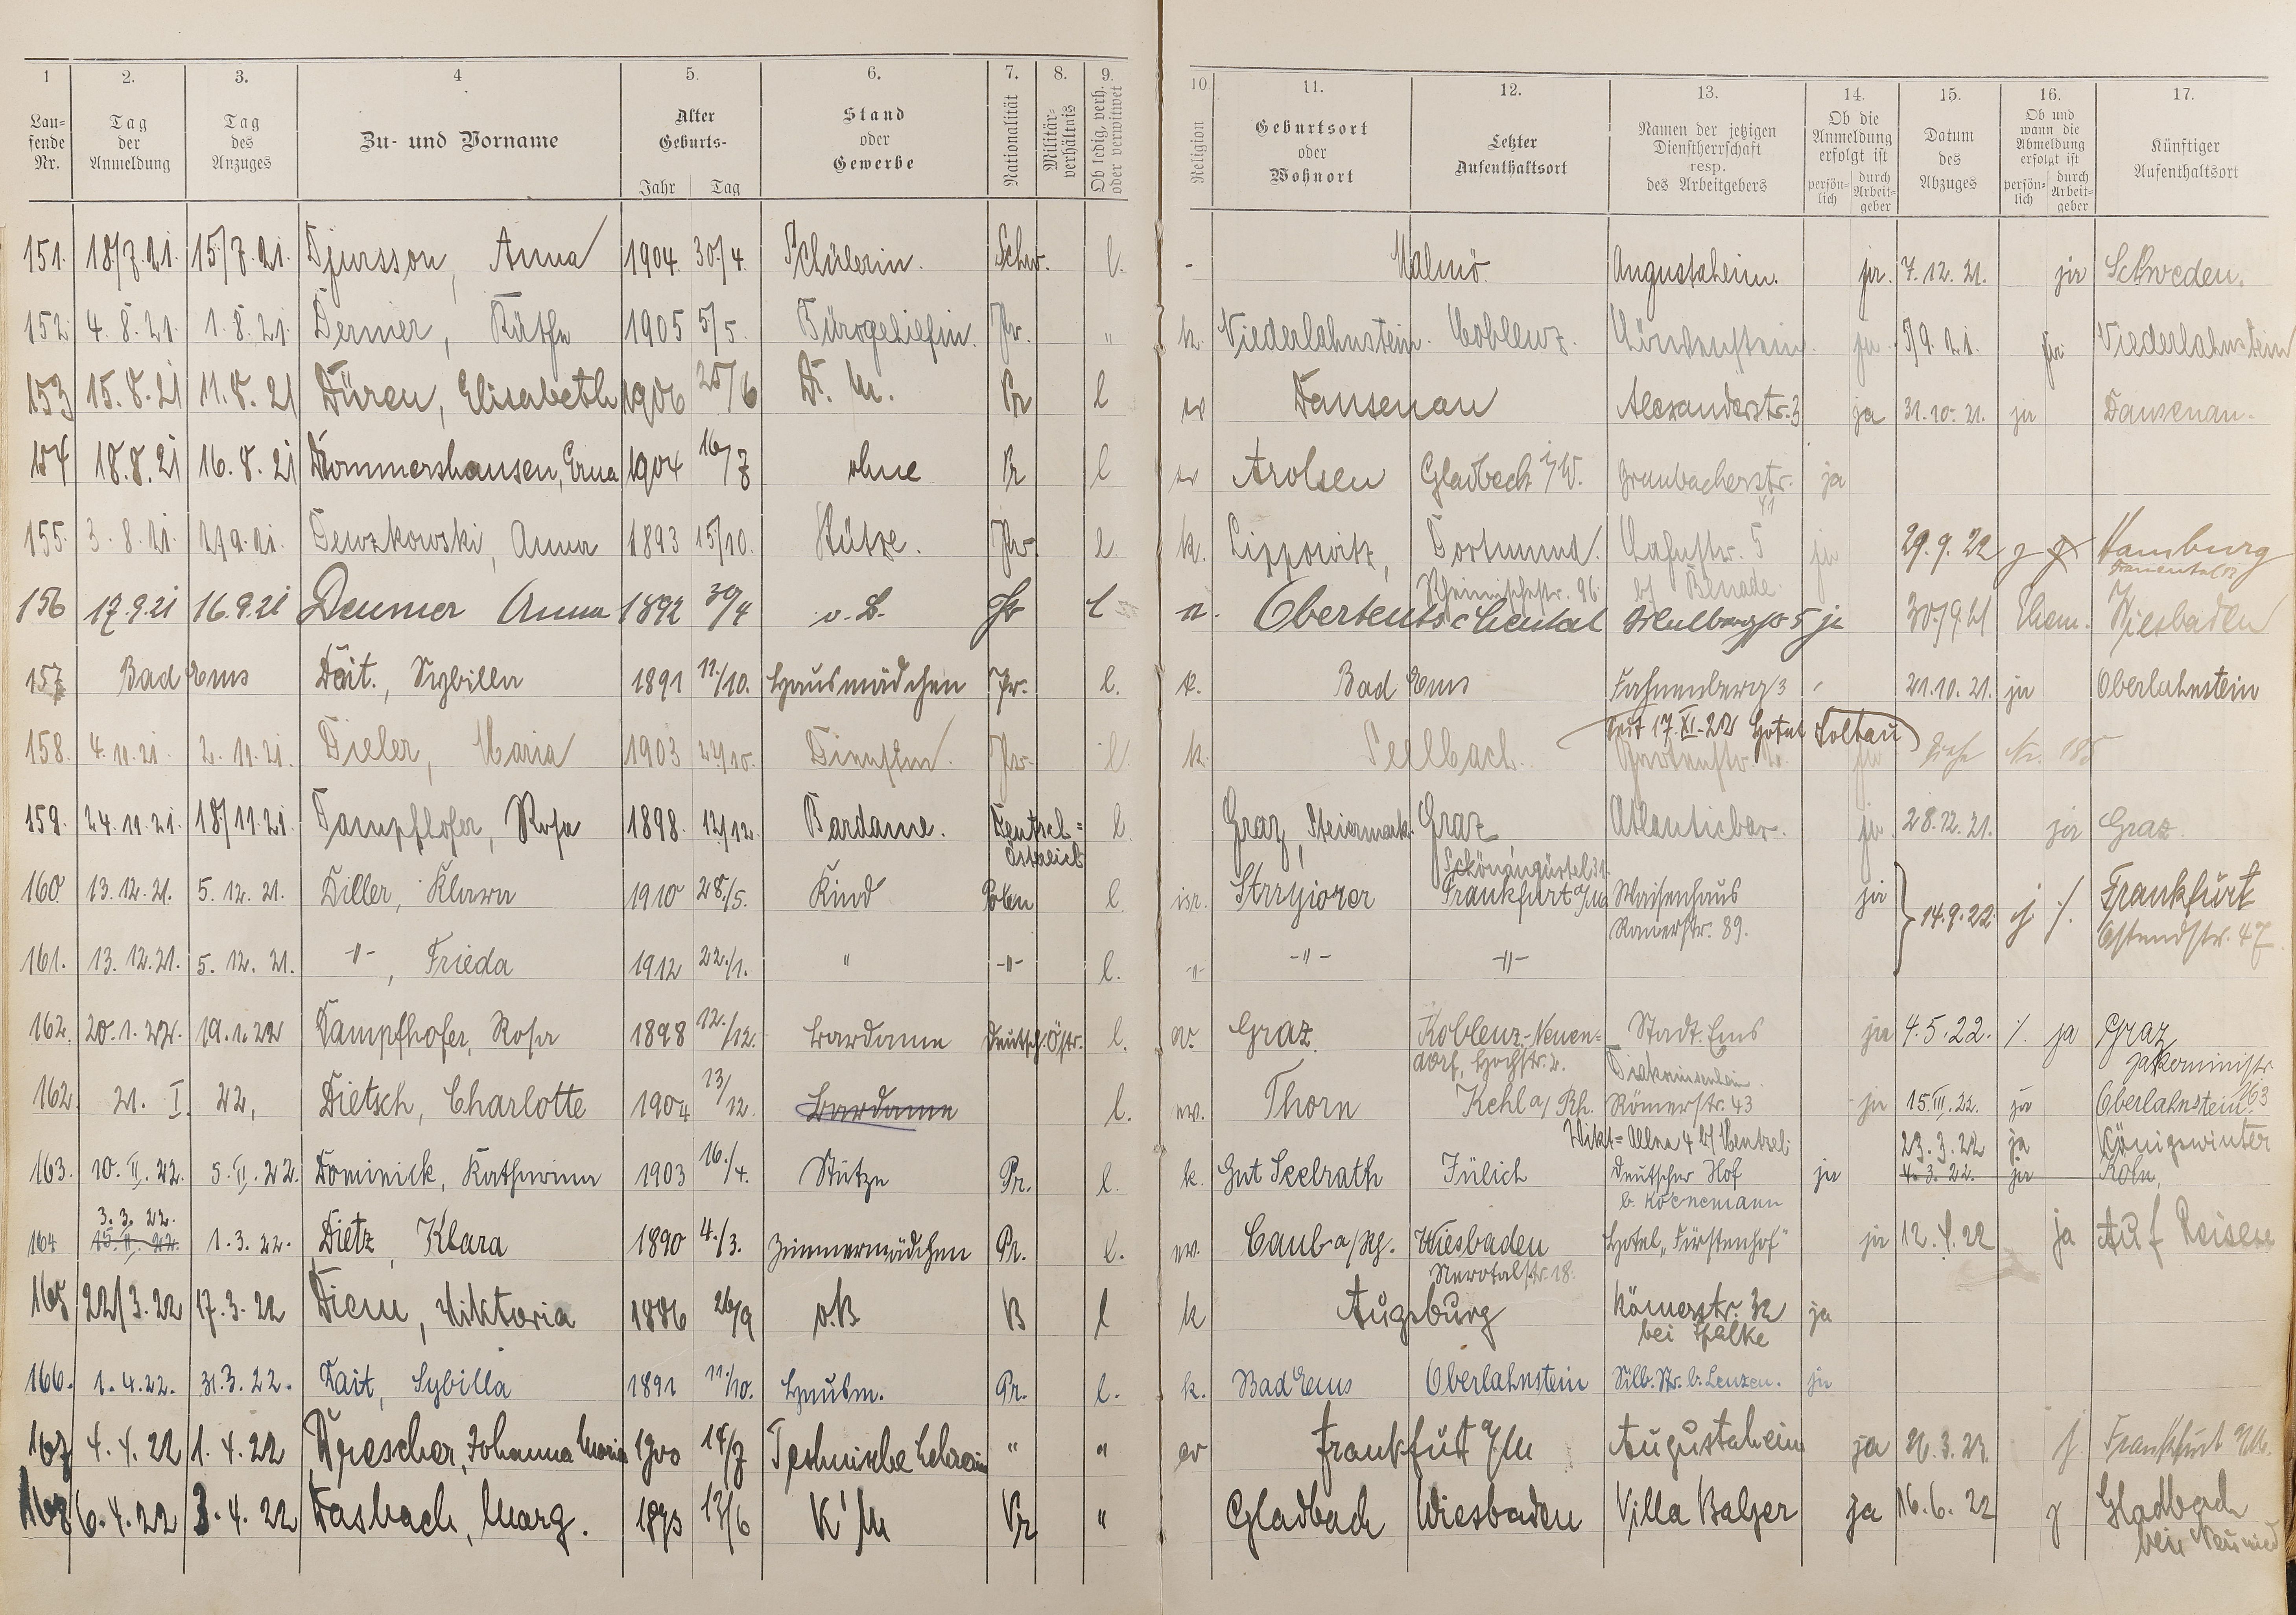 1 2. 3. 4 5. 6. 7. 8. 9. 10. 11. 12. 13. 14. 15. 16. 17.
Lau-
fende
Nr.
Tag
der
Anmeldung
Tag
des
Anzuges
Zu- und Vorname
Alter
Geburts-
Jahr Tag
Stand
oder
Gewerbe
Nationalität
Militär-
verhältnis
Ob ledig, verh.
oder verwitwet
Religion
Geburtsort
oder
Wohnort
Letzter
Aufenthaltsort
Namen der jetzigen
Dienstherrschaft
resp.
des Arbeitgebers
Ob die
Anmeldung
erfolgt ist
persön-
lich
durch
Arbeit-
geber
Datum
des
Abzuges
Ob und
wann die
Abmeldung
erfolgt ist
persön-
lich
durch
Arbeit-
geber
Künftiger
Aufenthaltsort
151. 18/7.21. 15/7.21. Djursson, Anna 1904. 30./4. Schülerin. Schw. l. - Malmö Augustaheim. ja. 7.12.21. ja Schweden.
152. 4.8.21. 1.8.21. Dermer, Käthe 1905 5/5. Bürogehilfin. Pr. " k. Niederlahnstein. Coblenz. ja 5/9.21. ja Niederlahnstein
153 15.8.21 11.8.21 Düren, Elisabeth 1906 25/6 D. M. Pr l ev Dausenau Alexanderstr. 3 ja 31.10.21. ja Dausenau.
154 18.8.21 16.8.21 Dommershausen, Erna 1904 16/7 ohne Pr l ev Arolsen Gladbeck i/W. Grünbacherstr. 41 ja
155. 3.8.21. Dewzkowski, Anna 1893 15/10. Stütze. Pr. l k. Lippowitz, Dortmund. Lahnstr. 5 ja 29.9.22 j Hamburg
Rheinischestr. 96. b/ Benade.
156 17.9.21 16.9.21 Deumer Anna 1892 30/4 o.B. Pr l Oberteutschental 5 ja 30/9.21 Wiesbaden
157 Bad Ems Dait., Sybilla 1891 11./10. Hausmädchen Pr. l. k. Bad Ems Fahnenberg 3 21.10.21. ja Oberlahnstein
seit 17.XI.22 Hotel Soltau
158. 4.11.21. 2.11.21. Dieler, Maria 1903 Dienstm. Pr. l. k. Seelbach. ja siehe Nr. 185
159. 24.11.21. 18/11.21. Dampfhofer, Rosa 1898. 12/12. Bardame. Deutsch= l. Graz, Steiermark. Graz Atlanticbar. ja 28.12.21. ja Graz.
östreich Schönaugürtel 31.
160 13.12.21. 5.12.21. Diller, Klara 1910 28./5. Kind Polen l. isr. Strryiozer Frankfurt a/M. Waisenhaus ja 14.9.22. j ⁒ Frankfurt
Römerstr. 89. Ostendstr. 47.
161. 13.12.21. 5.12.21. -"-, Frieda 1912 22./1. " -"- l. -"- -"- -"-
162. 20.1.22. 19.1.22 Dampfhofer, Rosa 1898 12./12. Bardame Deutsch.Östr. l. Graz. Koblenz-Neuen= Stadt Ems ja 4.5.22. ⁒ ja Graz
dorf, Hochstr. 2. Diakonissenheim. Jakoministr.
162. 21. I. 22. Dietsch, Charlotte 1904 13/12 Bardame l. ev. Thorn Kehl a/Rh. Römerstr. 43 ja 15.III.22. ja Oberlahnstein 163
Wikt=Allee 4 b/ Mentzel. 23.3.22 ja Königswinter
163. 10.II.22. 5.II.22. Dominick, Katharina 1903 16./4. Stütze Pr. l. k. Gut Seelrath Jülich Deutscher Hof ja 4.3.22. ja Köln.
b. Koenemann
3.3.22.
164 15.II.22. 1.3.22. Dietz, Klara 1890 4./3. Zimmermädchen Pr. l. ev. Caub a/Rh. Wiesbaden Hotel „Fürstenhof" ja 12.4.22 ja Auf Reisen
Nerotalstr. 18.
165 22/3.22 17.3.22 Diem, Viktoria 1886 26/9 o.B B l k Augsburg Römerstr. 32 ja
bei Spalke
166. 1.4.22. 31.3.22. Dait, Sybilla 1891 11./10. Hausm. Pr. l. k. Bad Ems Oberlahnstein Silb. Str. b. Lenzen. ja
167 4.4.22 1.4.22 Drescher, Johanna Maria 1900 14/7 Technische Lehrerin " " ev Frankfurt a/M Augustaheim ja 26.3.23. j. Frankfurt a/M.
168 6.4.22 3.4.22 Dasbach, Marg. 1893 13/6 K'M Pr " Gladbach Wiesbaden Villa Balzer ja 16.6.22 j Gladbach
bei Neuwied